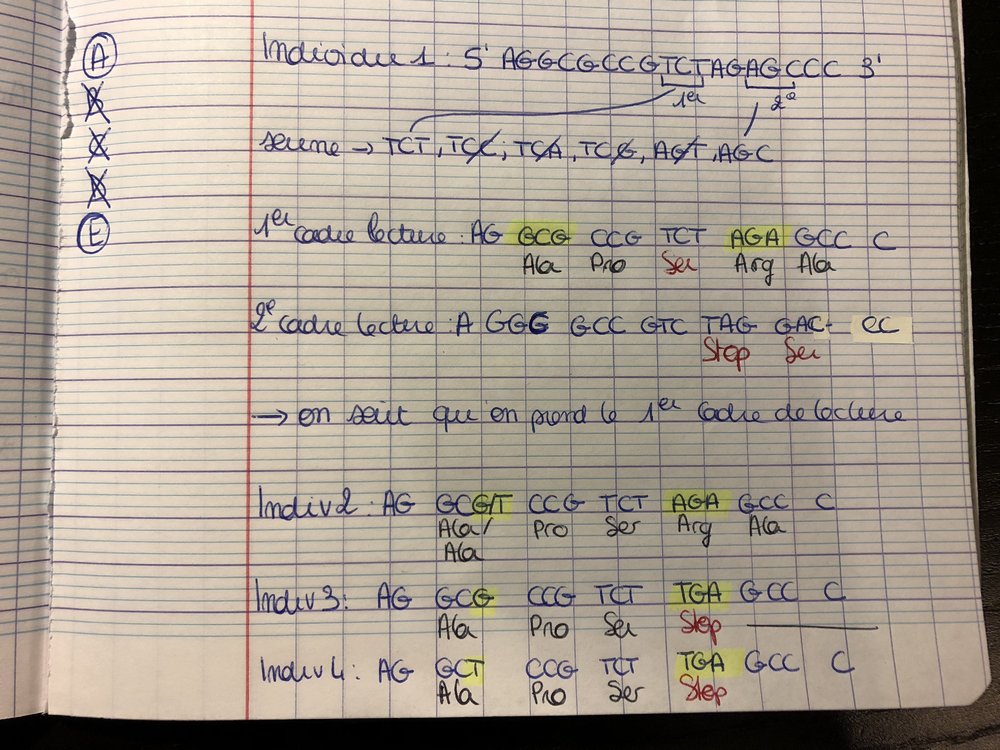 A
Individu 1 : 5' AGGCGCCGTCTAGAGCCC 3'
B
1er 2e
C
serine → TCT, TCC, TCA, TCG, AGT, AGC
D
E
1er cadre lecture : AG GCG CCG TCT AGA GCC C
Ala Pro Ser Arg Ala
2e cadre lecture : A GGG GCC GTC TAG GAC CC
Stop Ser
→ on sait qu'on prend le 1er cadre de lecture
Indiv 2 : AG GCG/T CCG TCT AGA GCC C
Ala/ Pro Ser Arg Ala
Ala
Indiv 3 : AG GCG CCG TCT TGA GCC C
Ala Pro Ser Stop
Indiv 4 : AG GCT CCG TCT TGA GCC C
Ala Pro Ser Stop